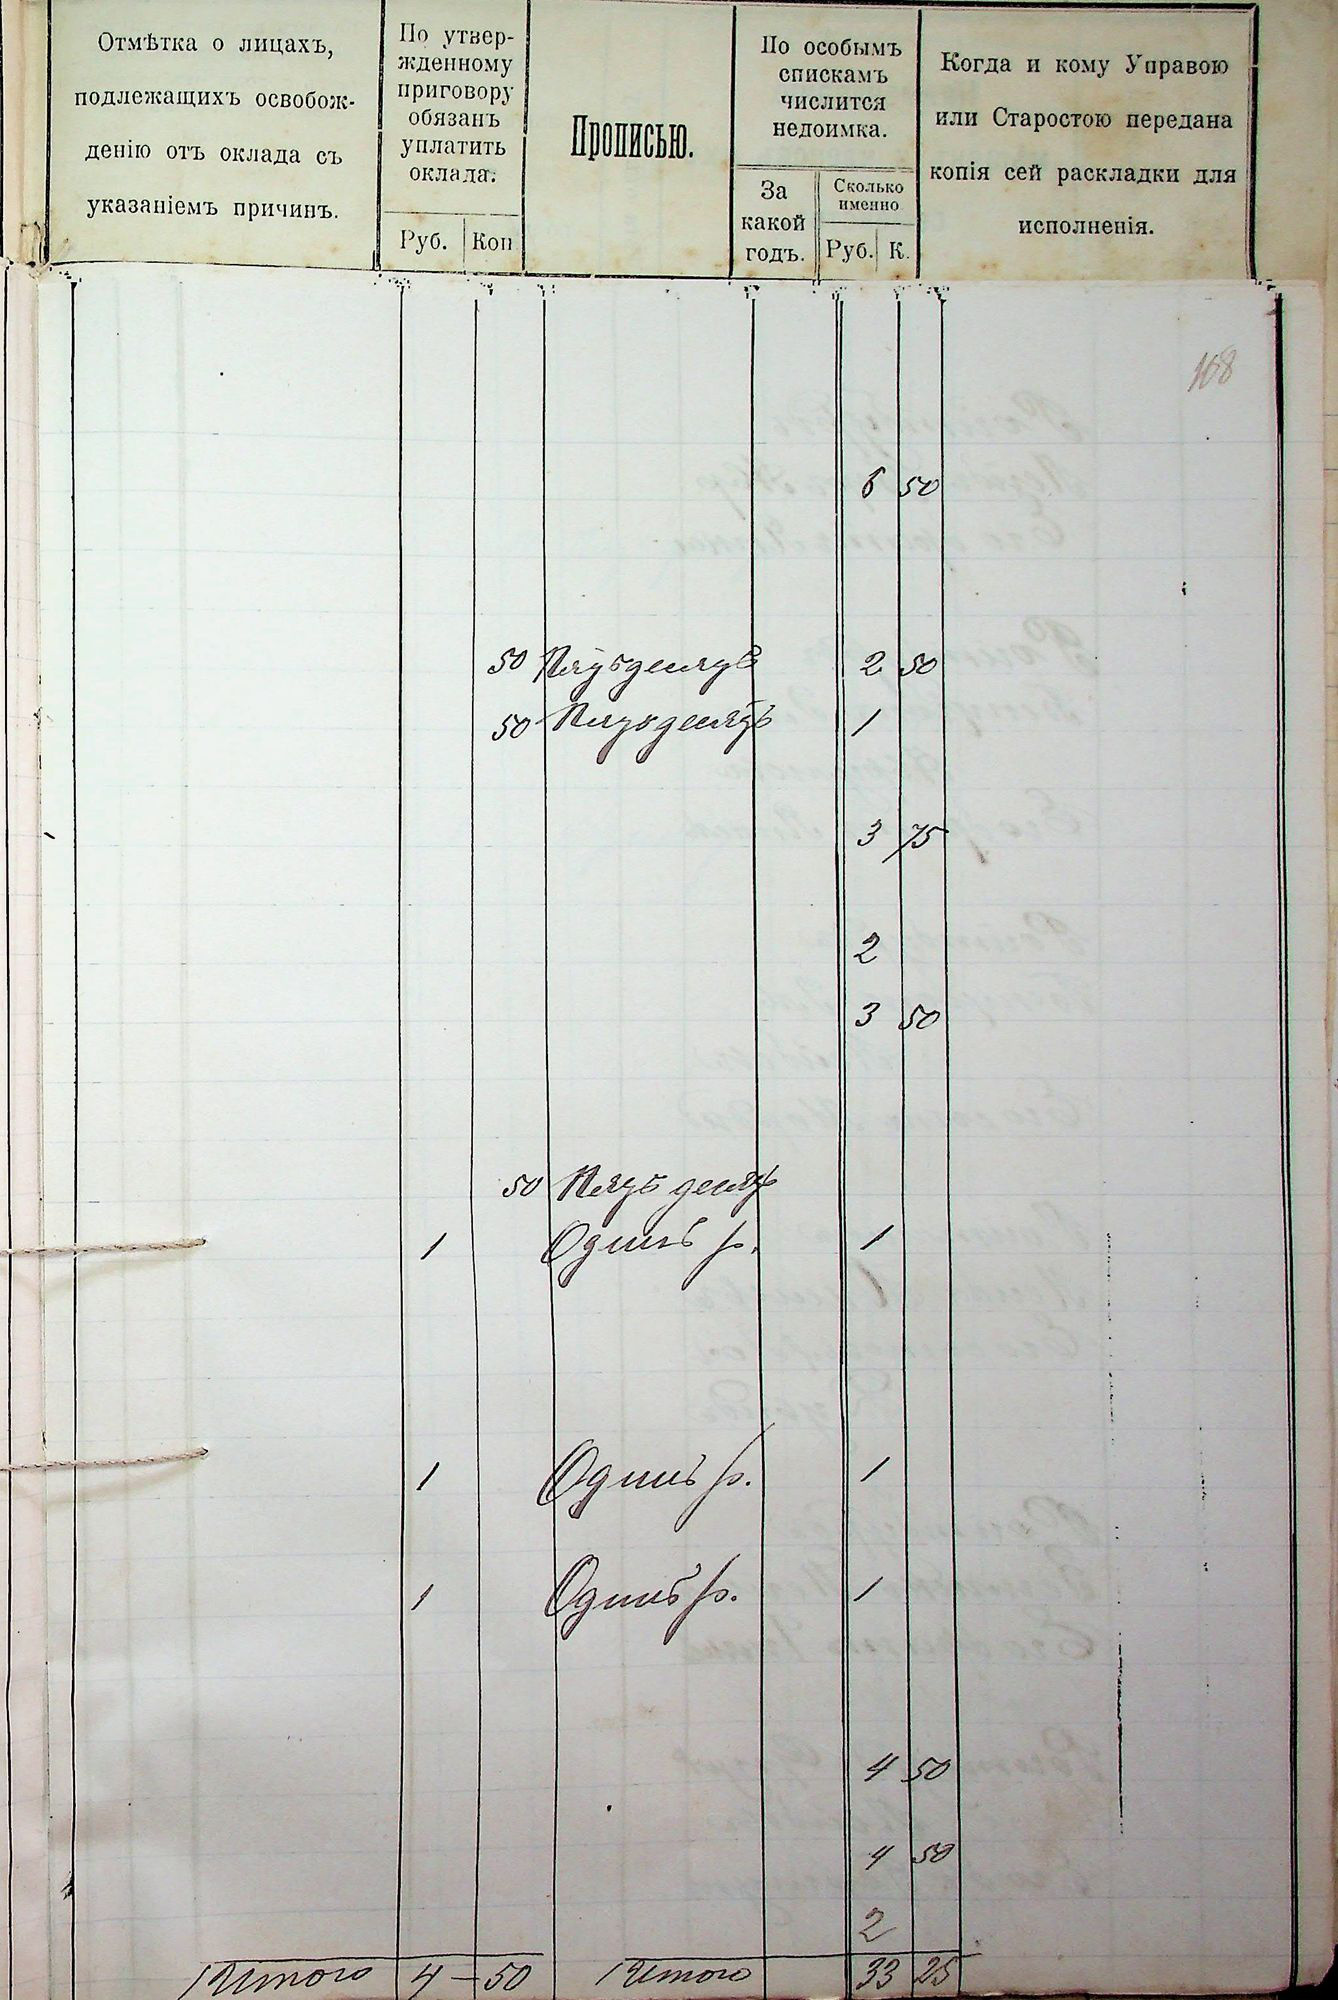 Отмѣтка о лицахъ,
подлежащихъ освобож-
денію отъ оклада съ
указаніемъ причинъ.
По утвер-
жденному
приговору
обязанъ
уплатить
оклада.
Руб. Коп
Прописью.
По особымъ
спискамъ
числится
недоимка.
За
какой
годъ.
Сколько
именно
Руб. К.
Когда и кому Управою
или Старостою передана
копія сей раскладки для
исполненія.
168
6 50
50 Пятьдесятъ 2 50
50 Пятьдесятъ 1
3 75
2
3 50
50 Пятьдесят
1 Одинъ р. 1
1 Одинъ р. 1
1 Одинъ р. 1
4 50
4 50
2
Итого 4 — 50 Итого 33 25